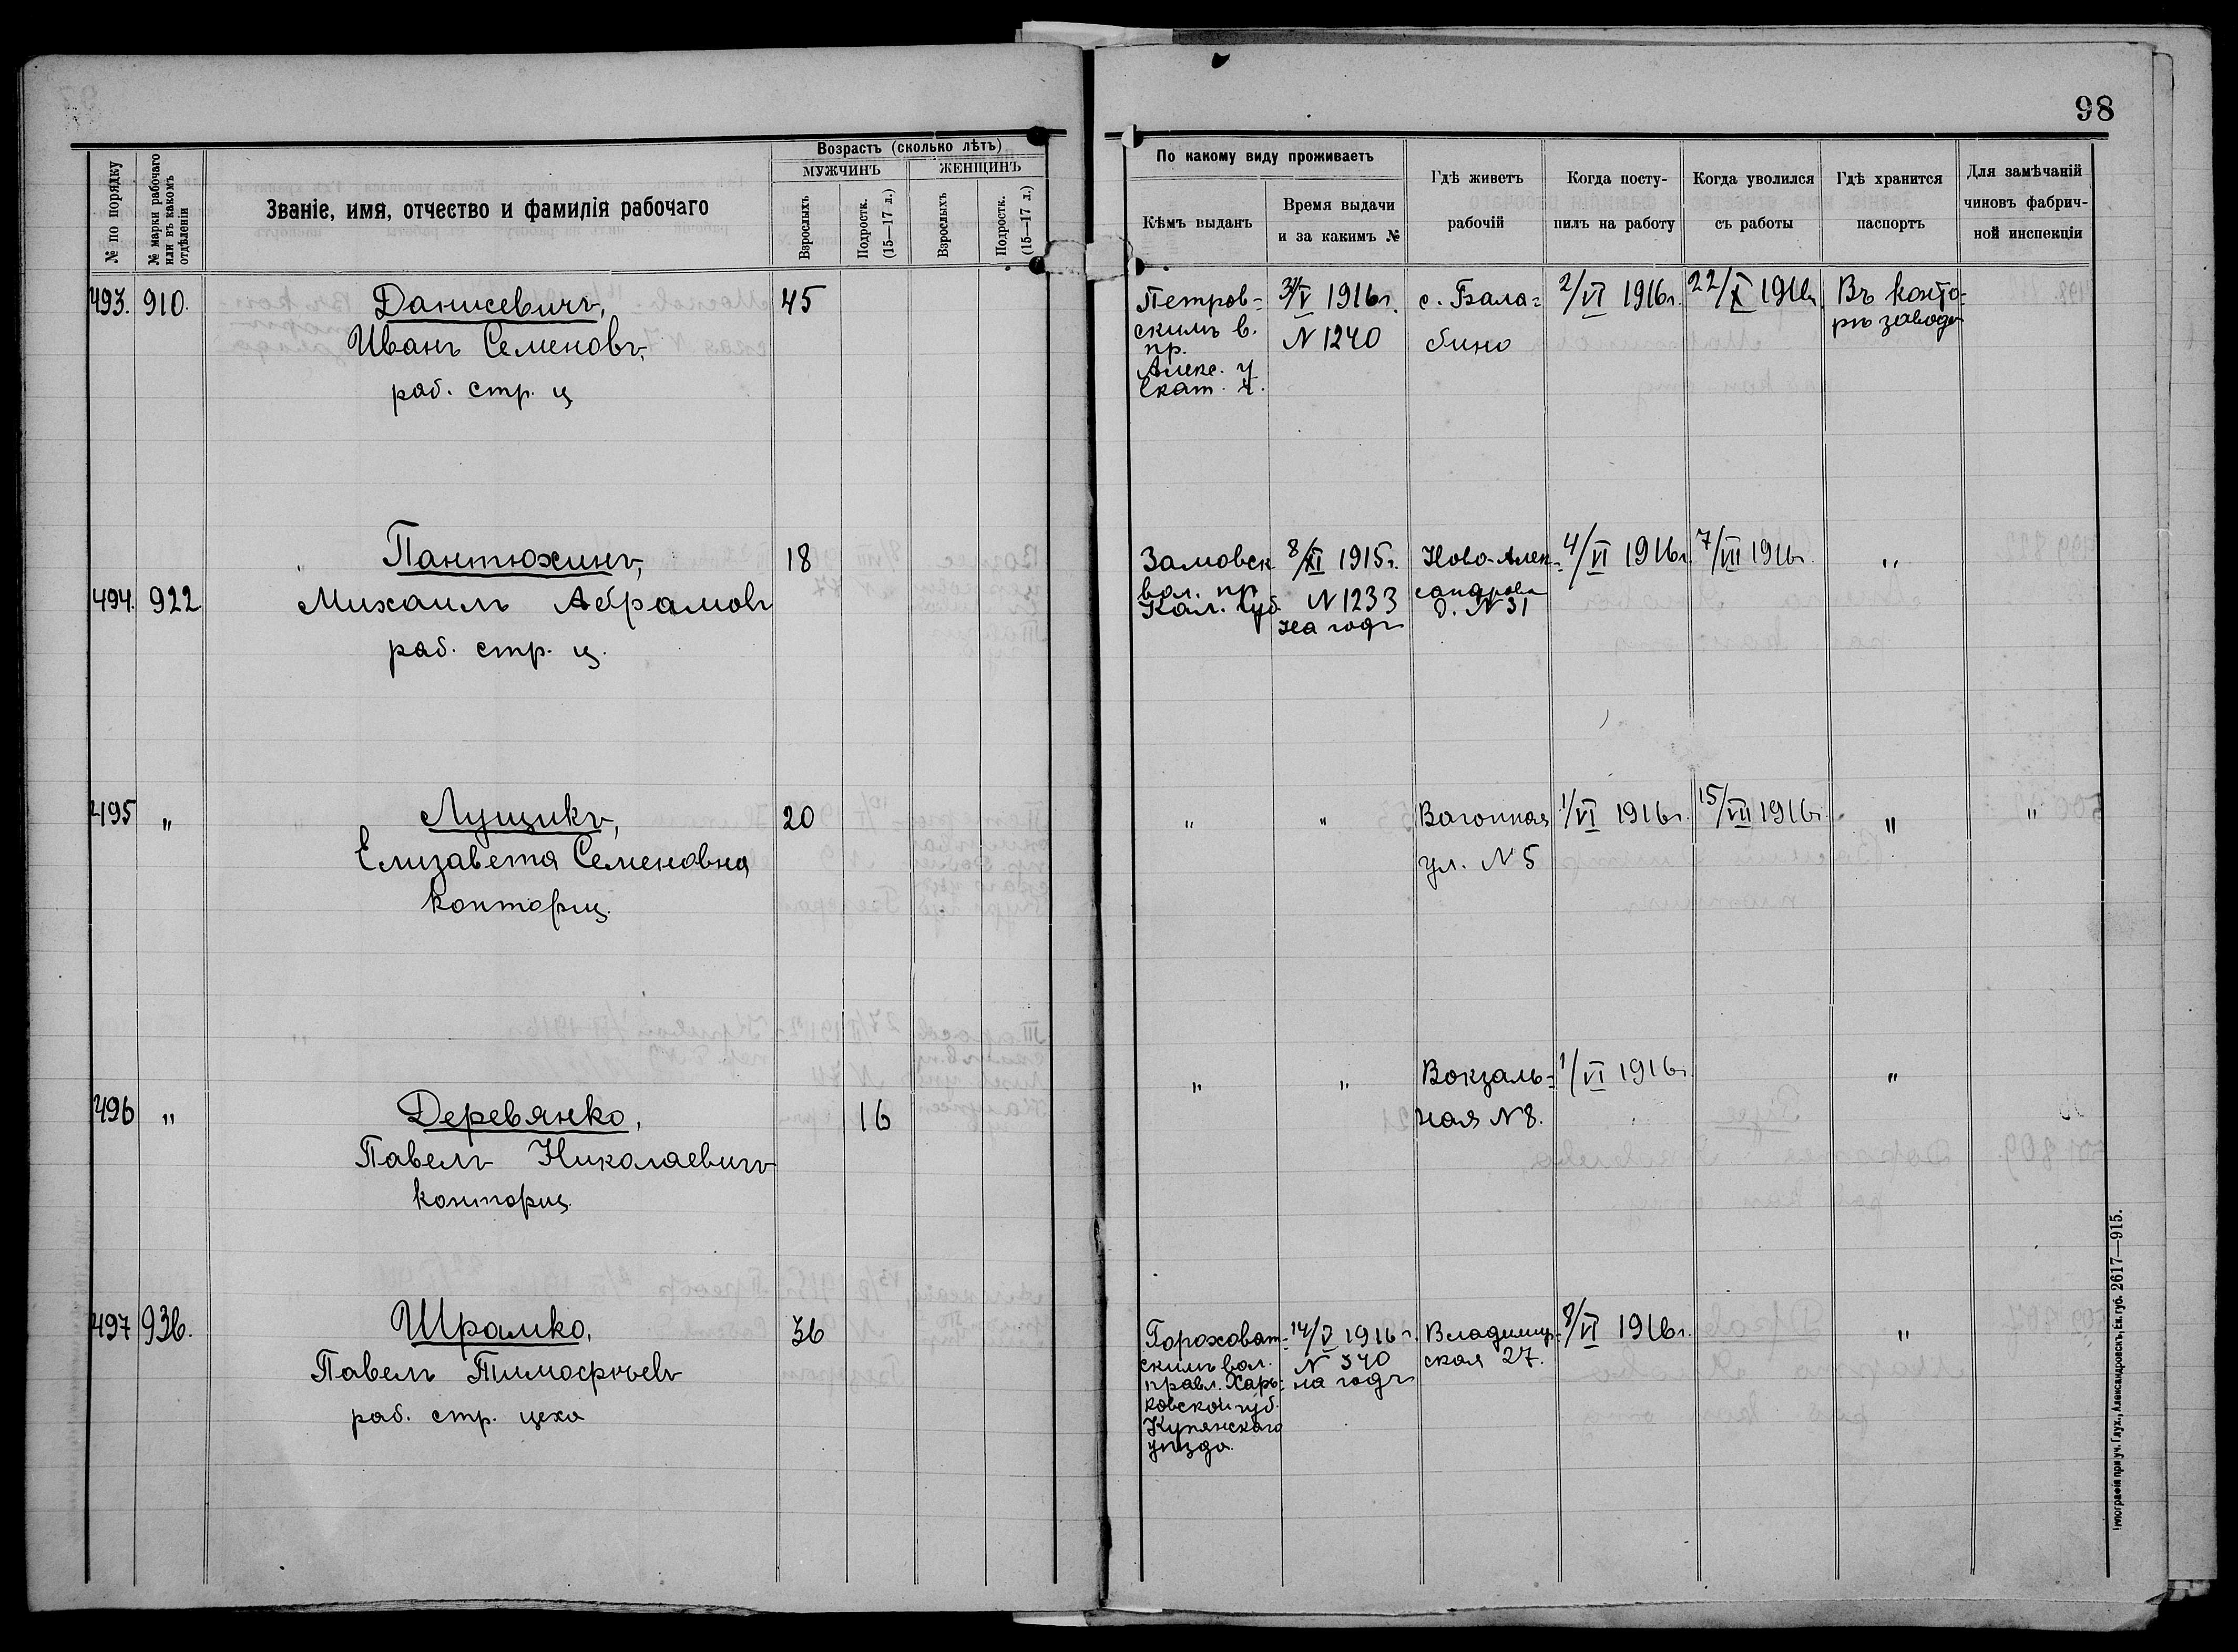 98
№ по порядку
№ марки рабочаго
или въ какомъ
отдѣленіи
Званіе, имя, отчество и фамилія рабочаго
Возрастъ (сколько лѣтъ)
МУЖЧИНЪ
ЖЕНЩИНЪ
Взрослыхъ
Подростк.
(15—17 л.)
Взрослыхъ
Подростк.
(15—17 л.)
По какому виду проживаетъ
Кѣмъ выданъ
Время выдачи
и за какимъ №
Гдѣ живетъ
рабочій
Когда посту-
пилъ на работу
Когда уволился
съ работы
Гдѣ хранится
паспортъ
Для замѣчаній
чиновъ фабрич-
ной инспекціи
493. 910.
Данисевичъ,
Иванъ Семеновъ,
раб. стр. ц
45
Петров-
скимъ в.
пр.
Алекс. у
Екат. г.
31/V 1916 г.
N 1240
с. Бала-
бино
2/VI 1916 г.
22/X 1916 г.
Въ конто-
рѣ завода
494. 922
Пантюхинъ,
Михаилъ Абрамовъ
раб. стр. ц.
18
Замовск
вол. пр.
Кал. губ
8/XI 1915 г.
N 1233
на годъ
Ново-Алек-
сандровка
д. N 31
4/VI 1916 г.
7/VII 1916 г.
"
495 "
Лущикъ,
Елизавета Семеновна
конторщ.
20
" "
Вагонная
ул. N 5
1/VI 1916 г.
15/VII 1916 г.
" "
496 "
Деревянко,
Павелъ Николаевичъ
конторщ.
16
" "
Вокзаль-
ная N 8.
1/VI 1916 г.
"
497 936.
Шрамко,
Павелъ Тимофѣевъ
раб. стр. цеха
36
Гороховат-
скимъ вол.
правл. Харь-
ковской губ.
Купянскаго
уѣзда.
14/V 1916 г.
N 340
на годъ
Владимир-
ская 27.
8/VI 1916 г.
"
при уч. Глух., Александровскъ, Ек. губ. 2617—915.